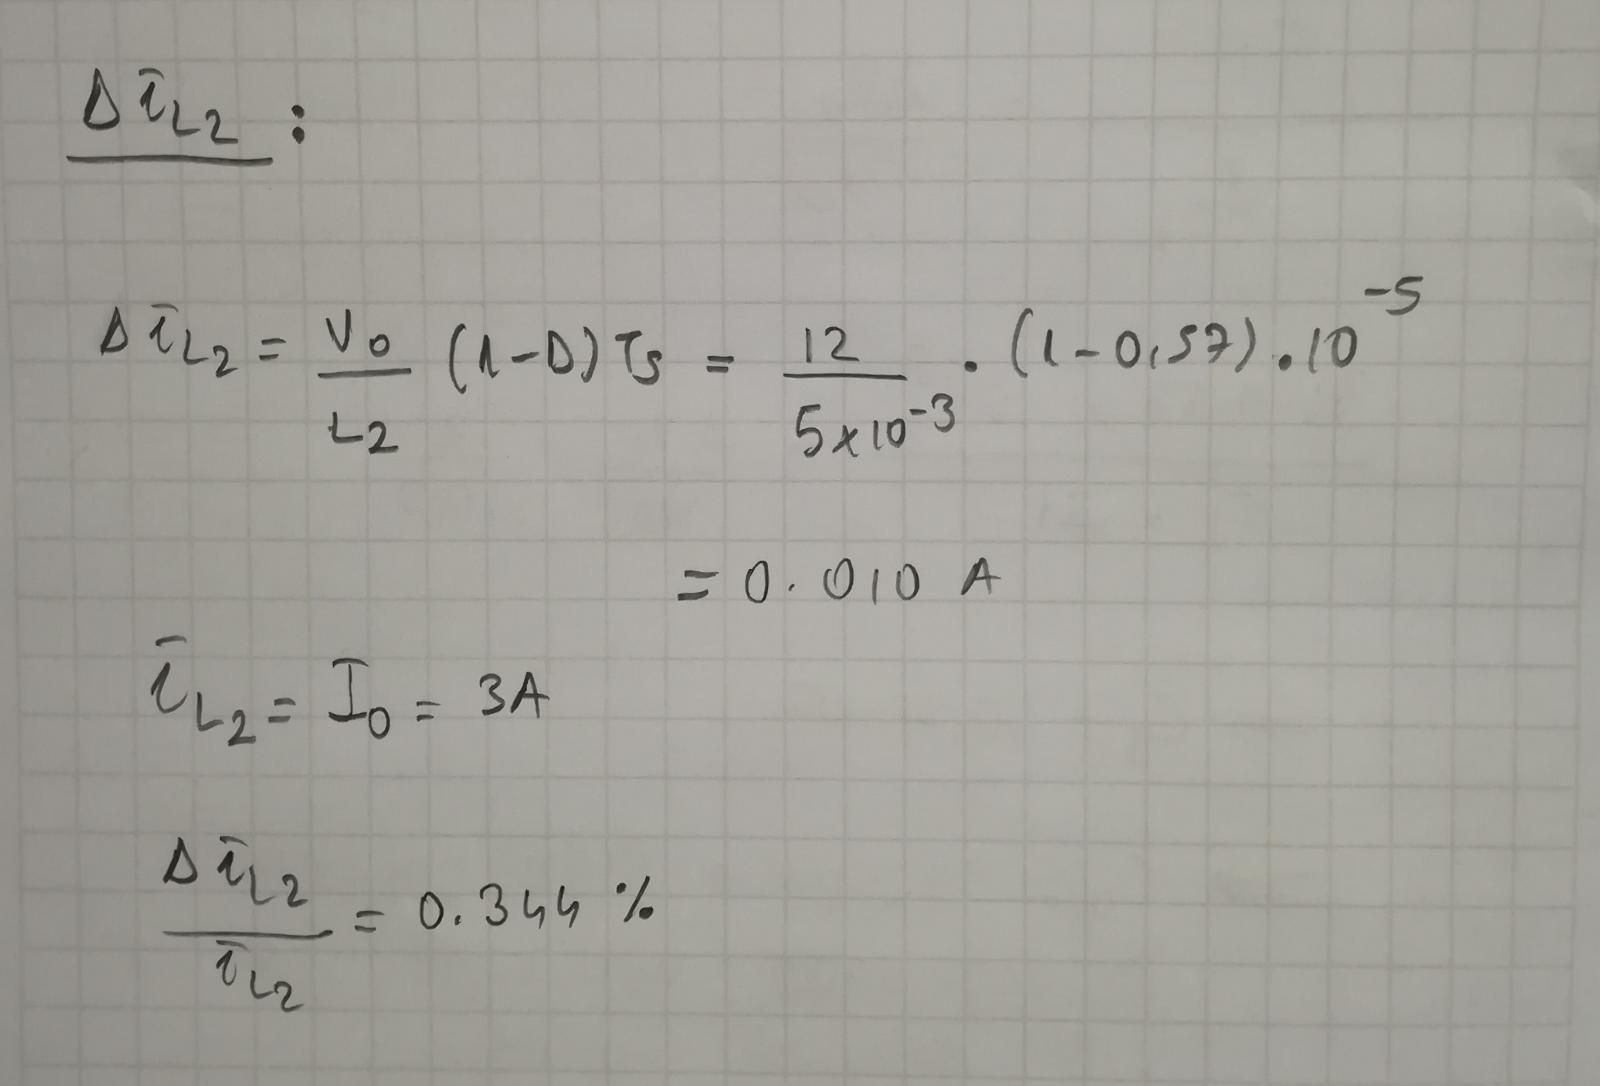 Δ i̅L2 :
Δ i̅L2 = Vo/L2 (1-D) Ts = 12/(5×10^-3) · (1-0,57) · 10^-5
= 0.010 A
i̅L2 = Io = 3A
Δ i̅L2 / i̅L2 = 0.344 %